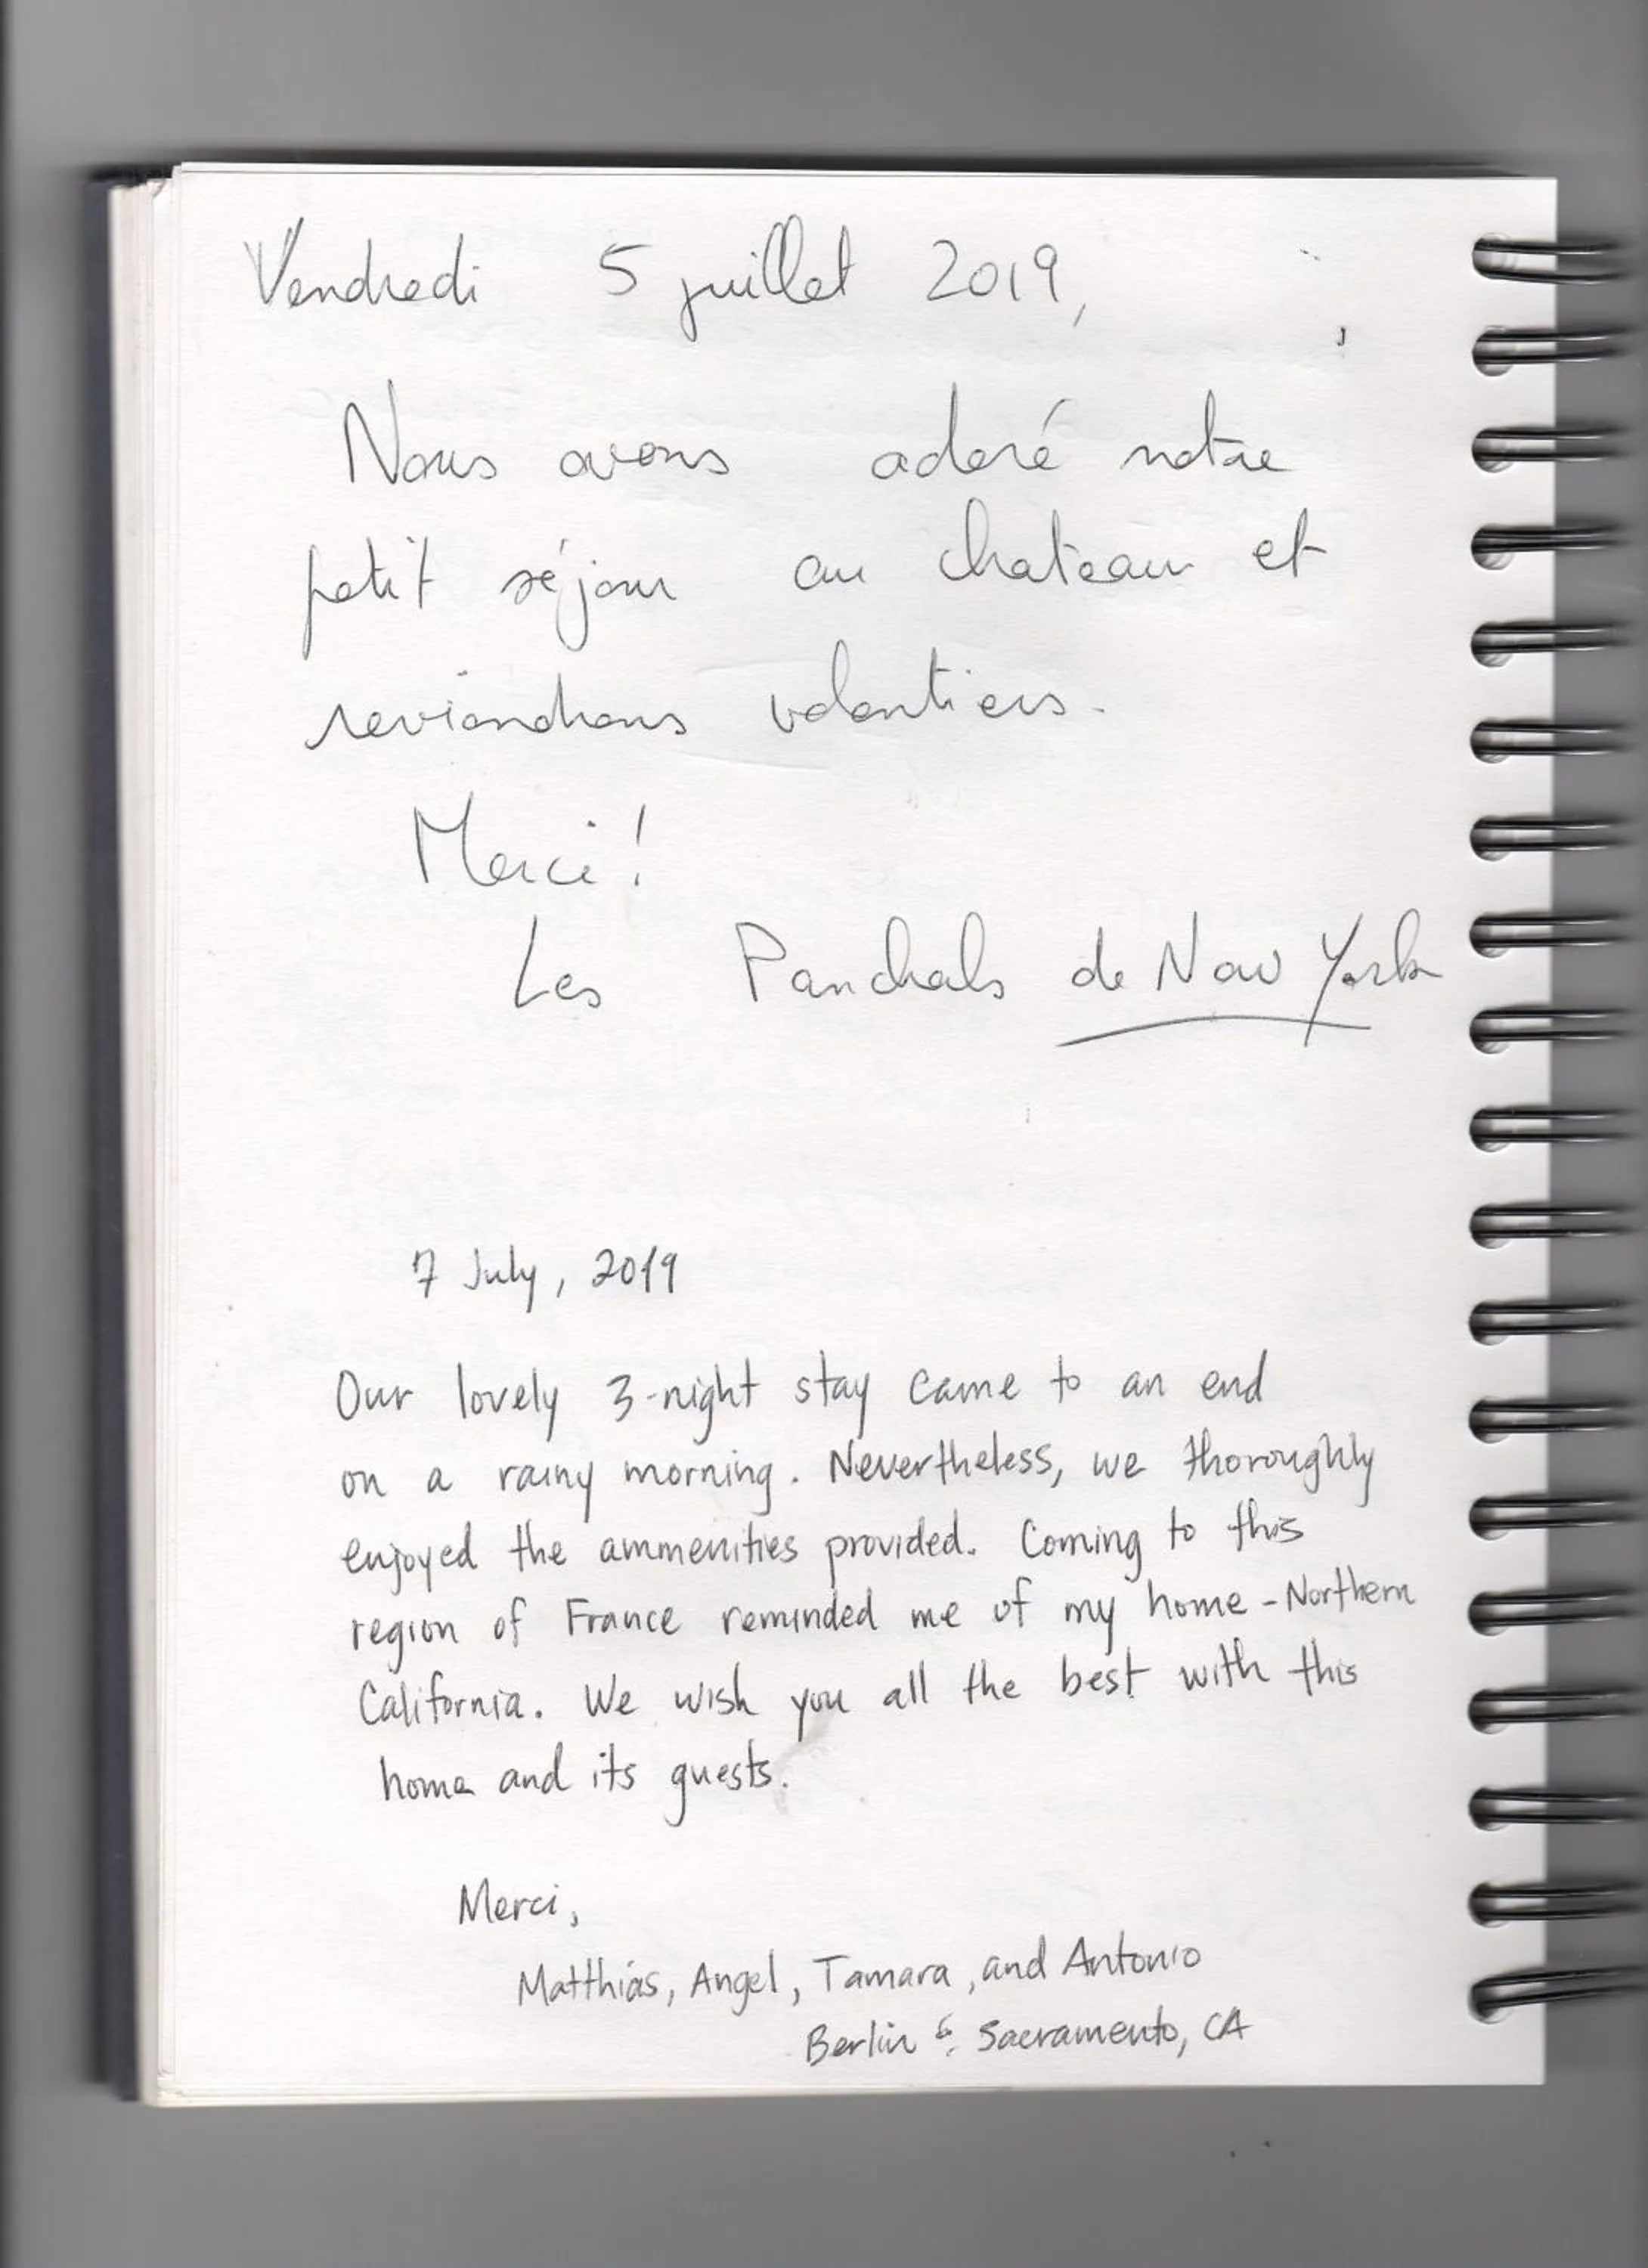 Vendredi 5 juillet 2019,
Nous avons adoré notre
petit séjour au chateau et
reviendrons volontiers.
Merci!
Les Panchals de New York
7 July, 2019
Our lovely 3-night stay came to an end
on a rainy morning. Nevertheless, we thoroughly
enjoyed the ammenities provided. Coming to this
region of France reminded me of my home - Northern
California. We wish you all the best with this
home and its guests.
Merci,
Matthias, Angel, Tamara, and Antonio
Berlin & Sacramento, CA